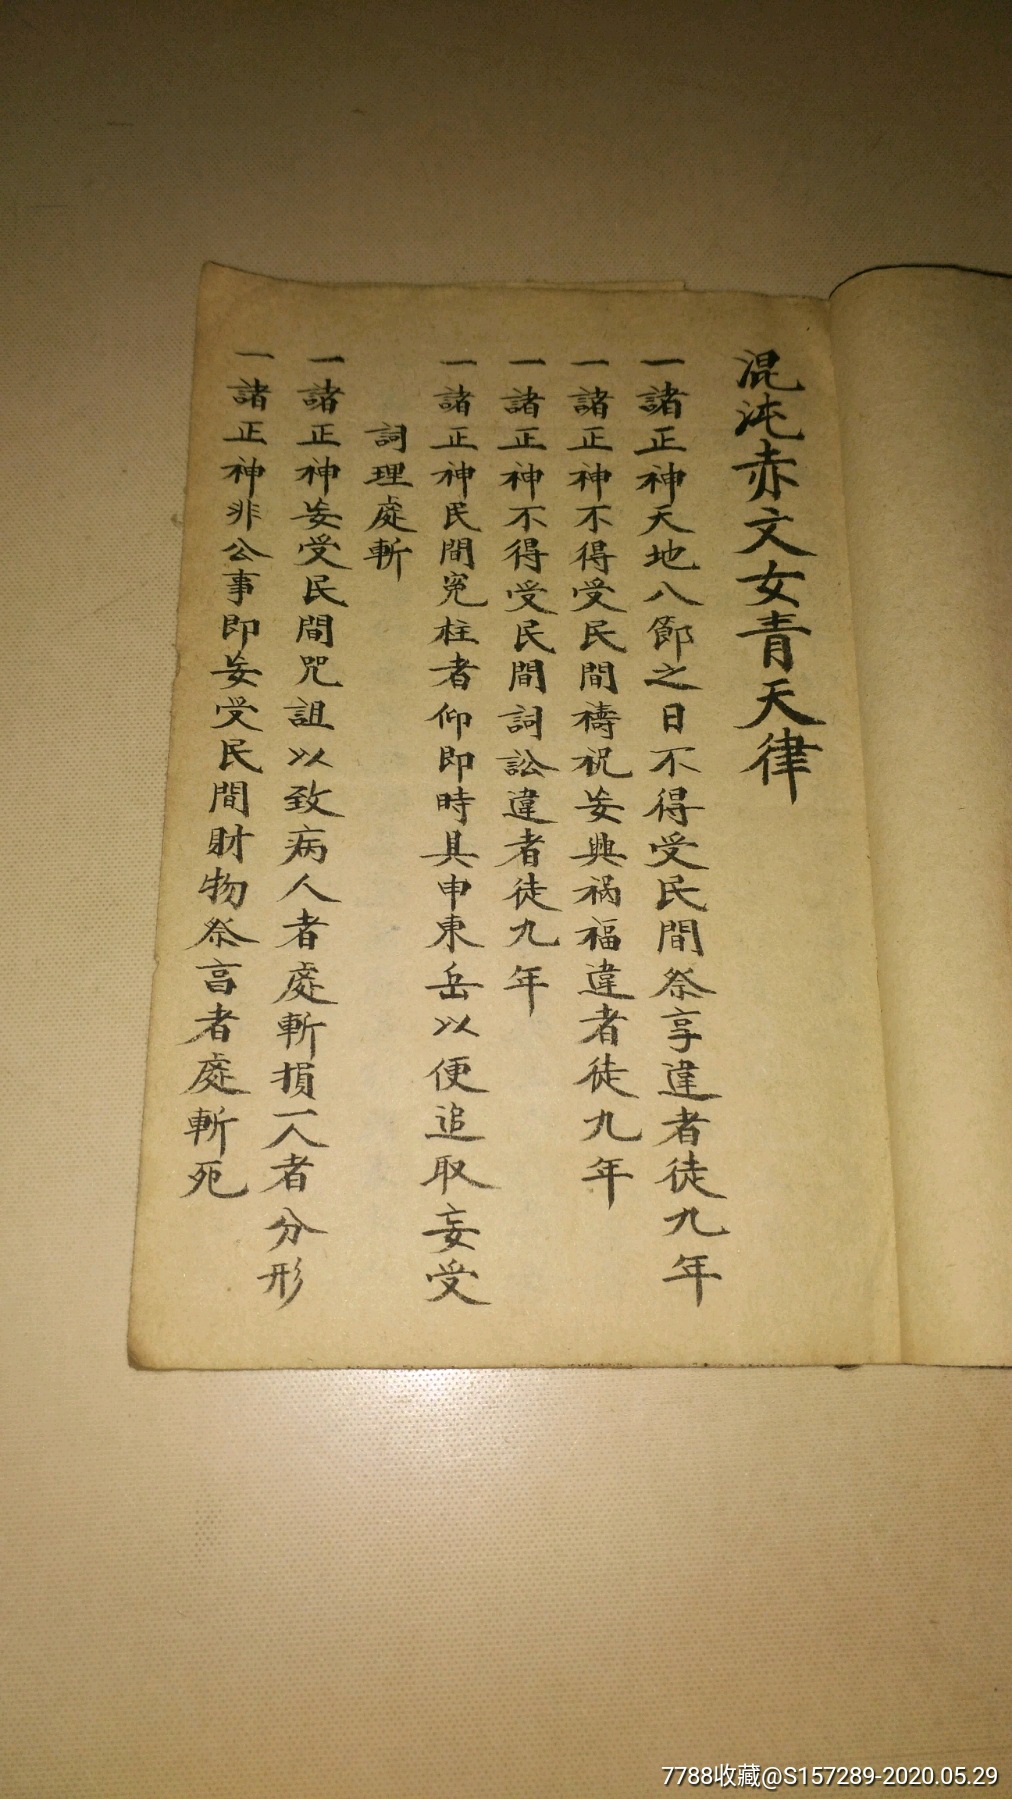 混沌赤文女青天律
一諸正神天地八節之日不得受民間祭享違者徒九年
一諸正神不得受民間禱祝妄興禍福違者徒九年
一諸正神不得受民間詞訟違者徒九年
一諸正神民間冤枉者仰即時具申東岳以便追取妄受
詞理處斬
一諸正神妄受民間咒詛以致病人者處斬損一人者分形
一諸正神非公事即妄受民間財物祭亯者處斬死
7788收藏@S157289-2020.05.29